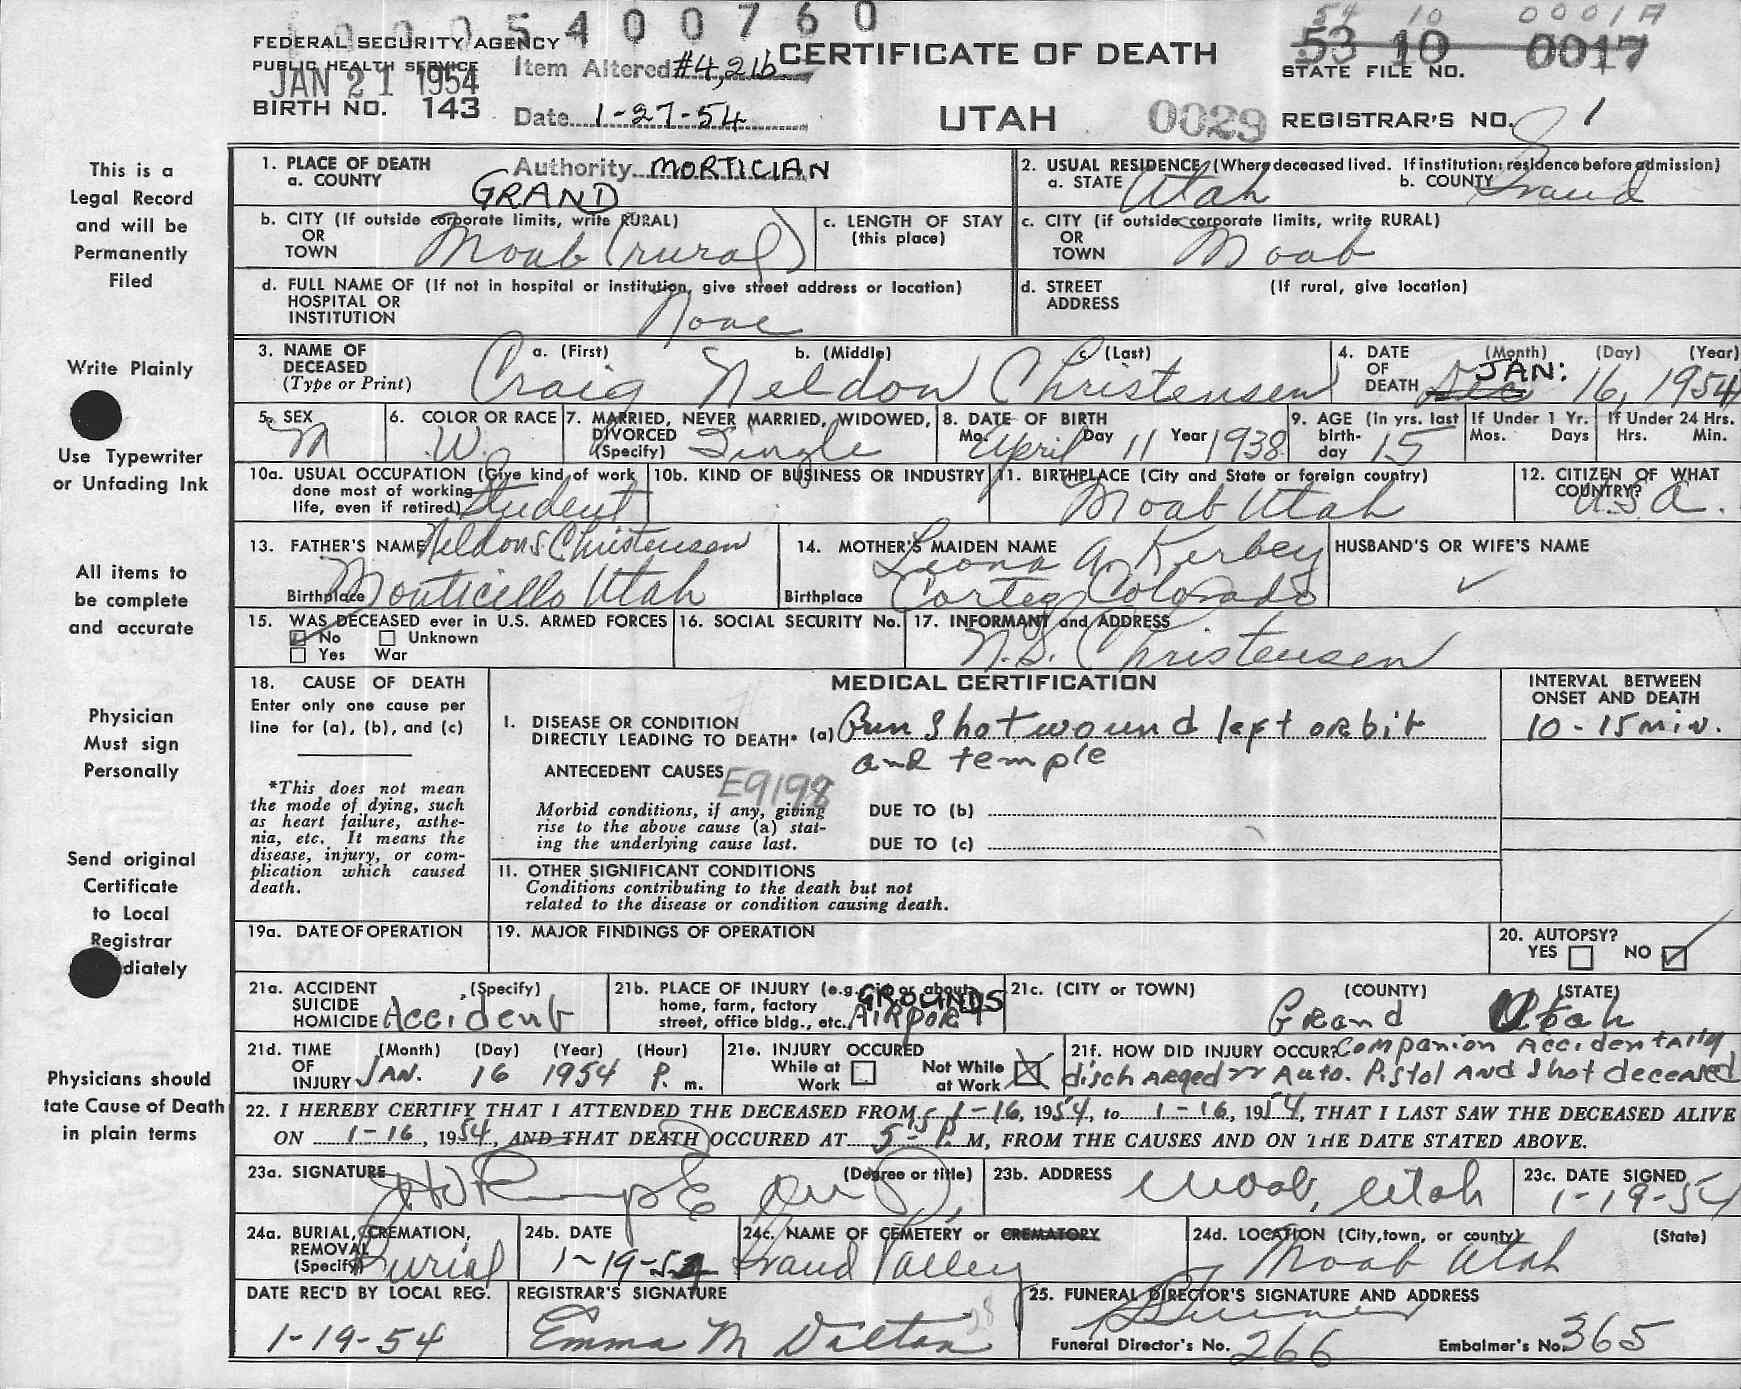 1000 5400760
54 10 0001A
FEDERAL SECURITY AGENCY
PUBLIC HEALTH SERVICE
JAN 21 1954
BIRTH NO. 143
Item Altered #4, 21b
Date 1-27-54
CERTIFICATE OF DEATH
UTAH
53 10 0017
STATE FILE NO.
0029 REGISTRAR'S NO. 1
This is a
Legal Record
and will be
Permanently
Filed
Write Plainly
Use Typewriter
or Unfading Ink
All items to
be complete
and accurate
Physician
Must sign
Personally
Send original
Certificate
to Local
Registrar
diately
Physicians should
tate Cause of Death
in plain terms
1. PLACE OF DEATH Authority MORTICIAN
a. COUNTY GRAND
2. USUAL RESIDENCE (Where deceased lived. If institution: residence before admission)
a. STATE Utah b. COUNTY Grand
b. CITY (If outside corporate limits, write RURAL)
OR
TOWN Moab (rural)
c. LENGTH OF STAY
(this place)
c. CITY (if outside corporate limits, write RURAL)
OR
TOWN Moab
d. FULL NAME OF (If not in hospital or institution, give street address or location)
HOSPITAL OR
INSTITUTION None
d. STREET (If rural, give location)
ADDRESS
3. NAME OF a. (First) b. (Middle) c. (Last)
DECEASED
(Type or Print) Craig Neldon Christensen
4. DATE (Month) (Day) (Year)
OF
DEATH Dec JAN: 16, 1954
5. SEX M
6. COLOR OR RACE W.
7. MARRIED, NEVER MARRIED, WIDOWED,
DIVORCED
(Specify) Single
8. DATE OF BIRTH
Mo. April Day 11 Year 1938
9. AGE (in yrs. last
birth-
day 15
If Under 1 Yr.
Mos. Days
If Under 24 Hrs.
Hrs. Min.
10a. USUAL OCCUPATION (Give kind of work
done most of working
life, even if retired) Student
10b. KIND OF BUSINESS OR INDUSTRY
11. BIRTHPLACE (City and State or foreign country)
Moab Utah
12. CITIZEN OF WHAT
COUNTRY? U.S.A.
13. FATHER'S NAME Neldon S. Christensen
Birthplace Monticello Utah
14. MOTHER'S MAIDEN NAME Leona A. Kerbey
Birthplace Cortez Colorado
HUSBAND'S OR WIFE'S NAME
15. WAS DECEASED ever in U.S. ARMED FORCES
No Unknown
Yes War
16. SOCIAL SECURITY No.
17. INFORMANT and ADDRESS
N.S. Christensen
18. CAUSE OF DEATH
Enter only one cause per
line for (a), (b), and (c)
*This does not mean
the mode of dying, such
as heart failure, asthe-
nia, etc. It means the
disease, injury, or com-
plication which caused
death.
MEDICAL CERTIFICATION
INTERVAL BETWEEN
ONSET AND DEATH
I. DISEASE OR CONDITION
DIRECTLY LEADING TO DEATH* (a) Gun shot wound left orbit
and temple
10 - 15 min.
ANTECEDENT CAUSES E9198
Morbid conditions, if any, giving
rise to the above cause (a) stat-
ing the underlying cause last.
DUE TO (b)
DUE TO (c)
II. OTHER SIGNIFICANT CONDITIONS
Conditions contributing to the death but not
related to the disease or condition causing death.
19a. DATE OF OPERATION
19. MAJOR FINDINGS OF OPERATION
20. AUTOPSY?
YES NO
21a. ACCIDENT (Specify)
SUICIDE
HOMICIDE Accident
21b. PLACE OF INJURY (e.g., in or about
home, farm, factory
street, office bldg., etc. AIRPORT GROUNDS
21c. (CITY or TOWN) (COUNTY) (STATE)
Grand Utah
21d. TIME (Month) (Day) (Year) (Hour)
OF
INJURY JAN. 16 1954 P. m.
21e. INJURY OCCURED
While at Work Not While at Work
21f. HOW DID INJURY OCCUR? Companion Accidentally
discharged 22 Auto. Pistol And shot deceased
22. I HEREBY CERTIFY THAT I ATTENDED THE DECEASED FROM 1-16, 1954, to 1-16, 1954, THAT I LAST SAW THE DECEASED ALIVE
ON 1-16, 1954, AND THAT DEATH OCCURED AT 5-15 P. M, FROM THE CAUSES AND ON THE DATE STATED ABOVE.
23a. SIGNATURE (Degree or title)
23b. ADDRESS Moab, Utah
23c. DATE SIGNED
1-19-54
24a. BURIAL, CREMATION,
REMOVAL
(Specify) Burial
24b. DATE
1-19-54
24c. NAME OF CEMETERY or CREMATORY
Grand Valley
24d. LOCATION (City, town, or county) (State)
Moab Utah
DATE REC'D BY LOCAL REG.
1-19-54
REGISTRAR'S SIGNATURE
Emma M Dalton 28
25. FUNERAL DIRECTOR'S SIGNATURE AND ADDRESS
Funeral Director's No. 266 Embalmer's No. 365